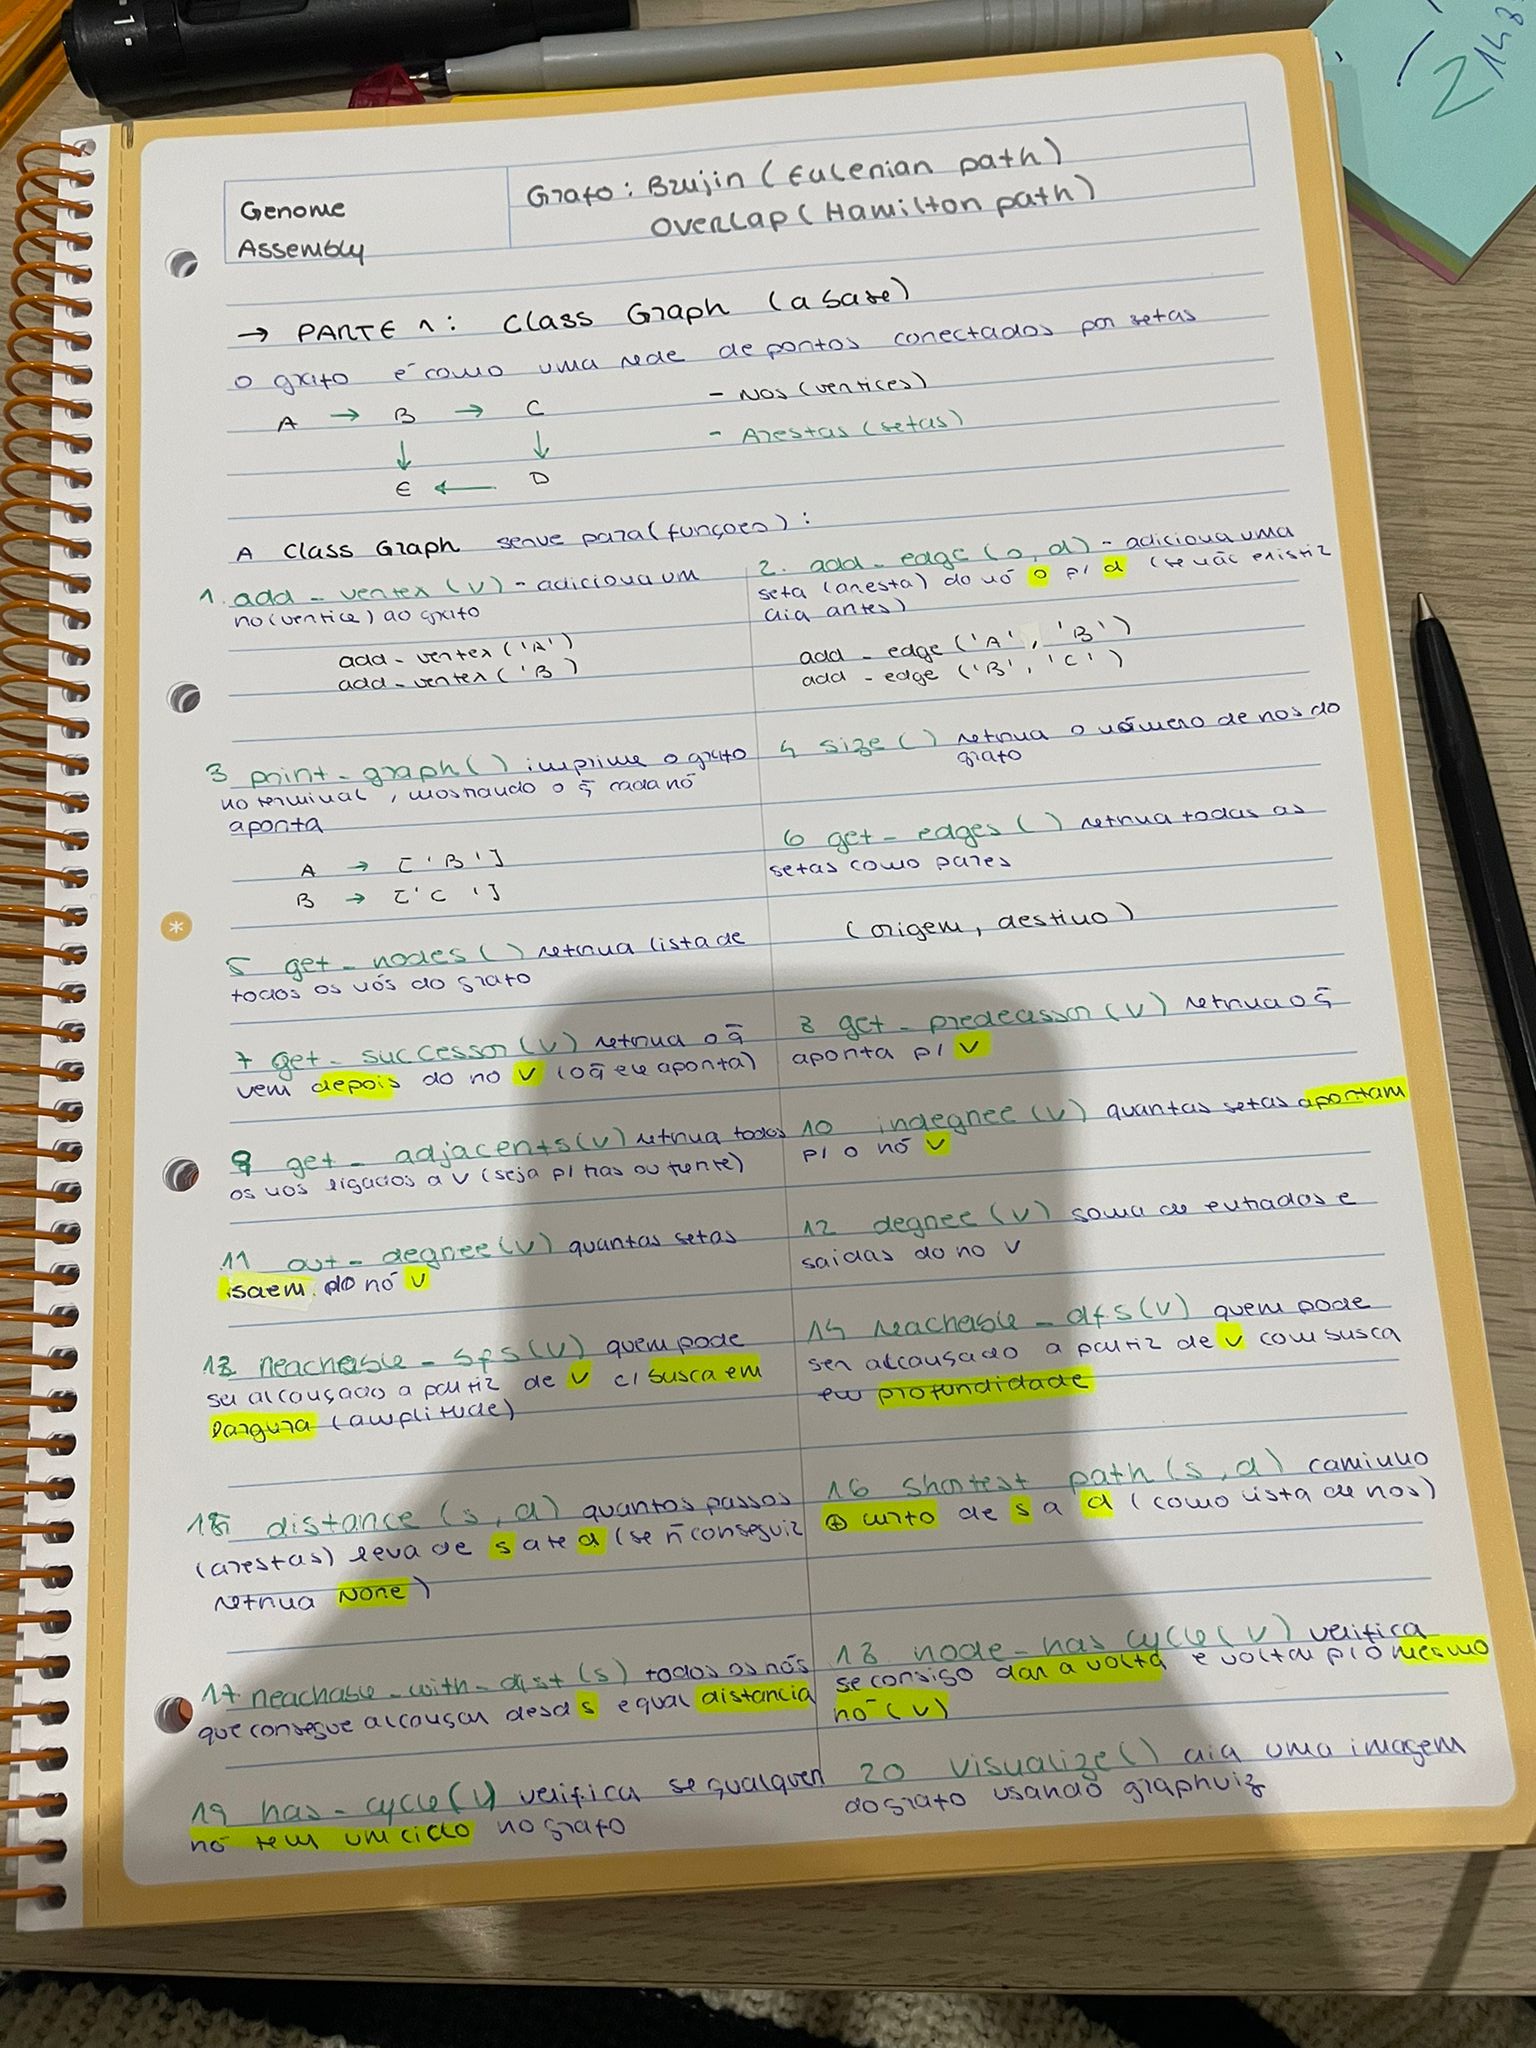 Genome
Assembly
Grafo: Brujin (Eulenian path)
Overlap (Hamilton path)
→ PARTE 1: Class Graph (a base)
o grafo é como uma rede de pontos conectados por setas
A → B → C
- Nos (vertices)
↓ ↓
- Arestas (setas)
E ← D
A Class Graph serve para (funções):
1. add_vertex (v) - adiciona um
no (vertice) ao grafo
add_vertex ('A')
add_vertex ('B')
2. add_edge (o, d) - adiciona uma
seta (aresta) do nó o p/ d (se não existir
cria antes)
add_edge ('A', 'B')
add_edge ('B', 'C')
3 print_graph() imprime o grafo
no terminal, mostrando o q̃ cada nó
aponta
A → ['B']
B → ['C']
4 size() retrna o número de nos do
grafo
5 get_nodes() retrna lista de
todos os nós do grafo
6 get_edges() retrna todas as
setas como pares
(origem, destino)
7 get_successor(v) retrna o q̃
vem depois do no v (o q̃ ele aponta)
8 get_predecessor(v) retrna o q̃
aponta p/ v
9 get_adjacents(v) retrna todos
os nos ligados a v (seja p/ tras ou frente)
10 indegree(v) quantas setas apontam
p/ o nó v
11 out_degree(v) quantas setas
saem do nó v
12 degree(v) soma de entradas e
saidas do no v
13 reachable_bfs(v) quem pode
ser alcançado a partir de v c/ busca em
largura (amplitude)
14 reachable_dfs(v) quem pode
ser alcançado a partir de v com busca
em profundidade
15 distance (s, d) quantos passos
(arestas) leva de s ate d (se ñ conseguir
retrna None)
16 shortest path (s, d) caminho
⊕ curto de s a d (como lista de nos)
17 reachable_with_dist(s) todos os nós
que consegue alcançar desd s e qual distancia
18. node_has cycle(v) verifica
se consigo dar a volta e voltar p/ o mesmo
nó (v)
19 has_cycle() verifica se qualquer
nó tem um ciclo no grafo
20 visualize() cria uma imagem
do grafo usando graphviz